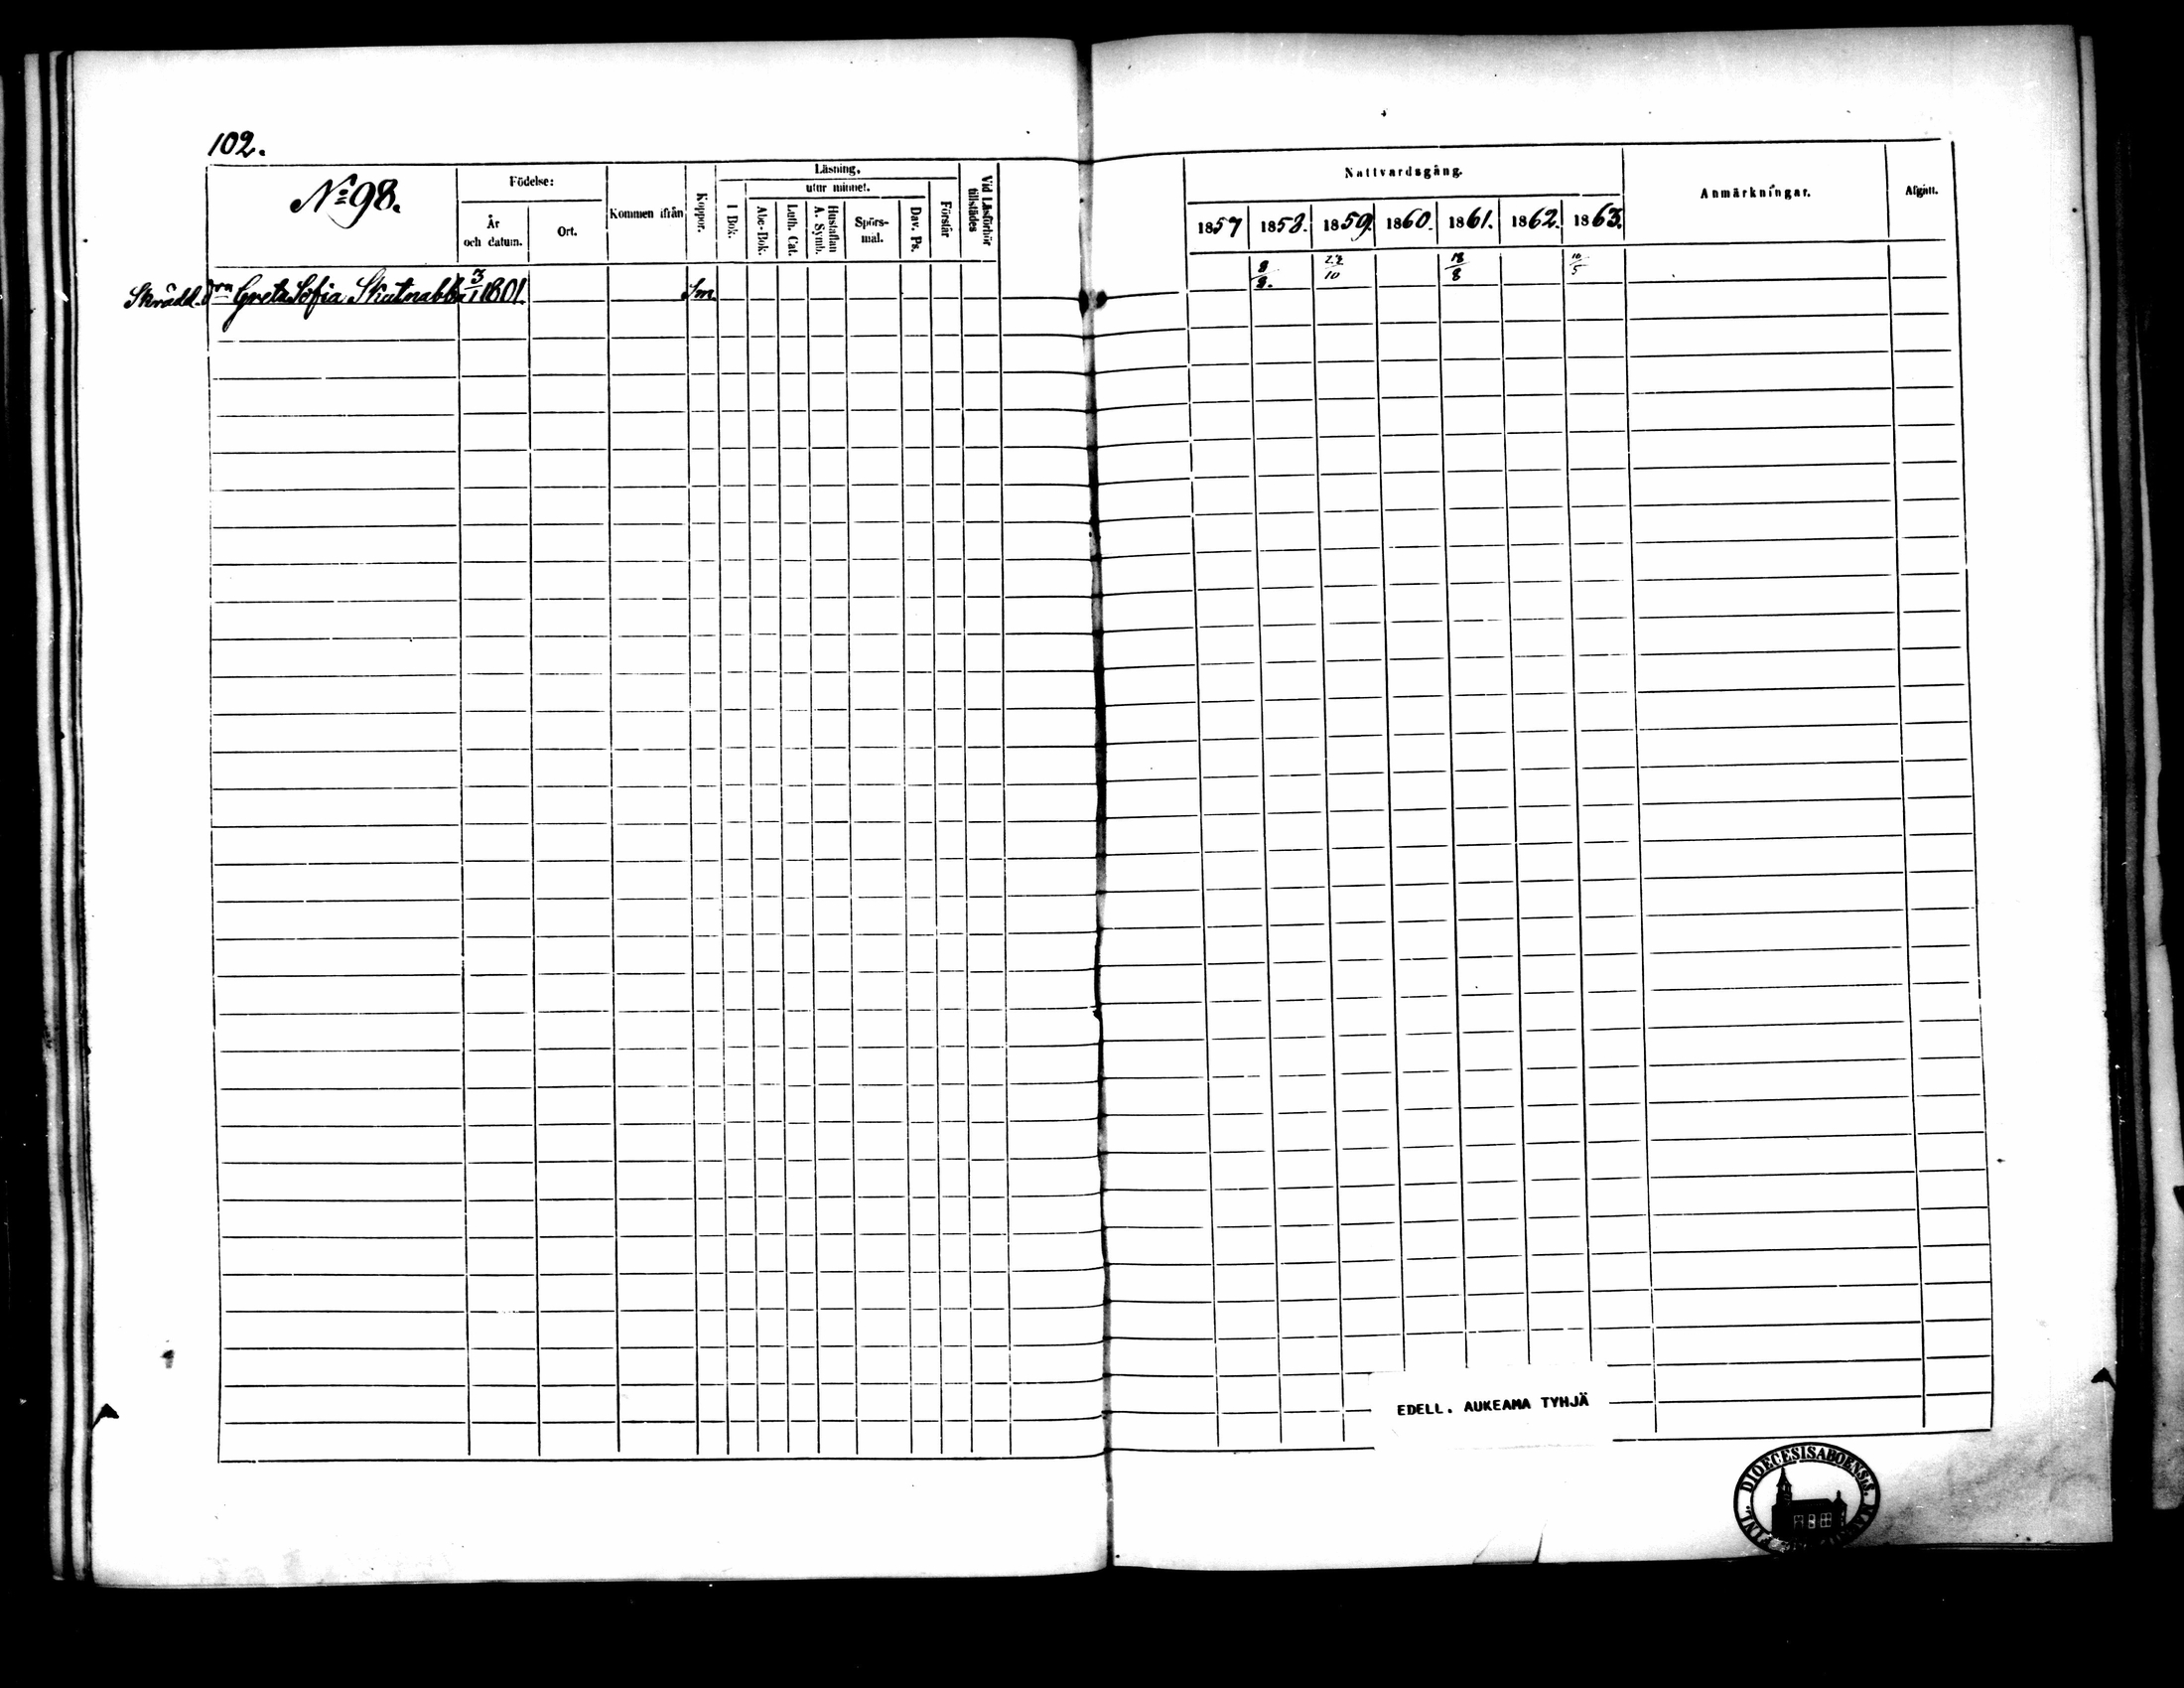 102.
No 98.
Födelse:
År och datum.
Ort.
Kommen ifrån
Koppor.
Läsning,
utur minnet.
I Bok.
Abc-Bok.
Luth. Cat.
Hustaflan A. Symb.
Spörsmål.
Dav. Ps.
Förstår
Vid Läsförhör tillstädes
Nattvardsgång.
1857 1858. 1859. 1860. 1861. 1862. 1863.
Anmärkningar.
Afgått.
Skrädd. Greta Sofia Skutnabba 3/1 1801. Sm. 8/8. 10 18/8 5
EDELL. AUKEAMA TYHJÄ
DIOECESIS ABOENSIS